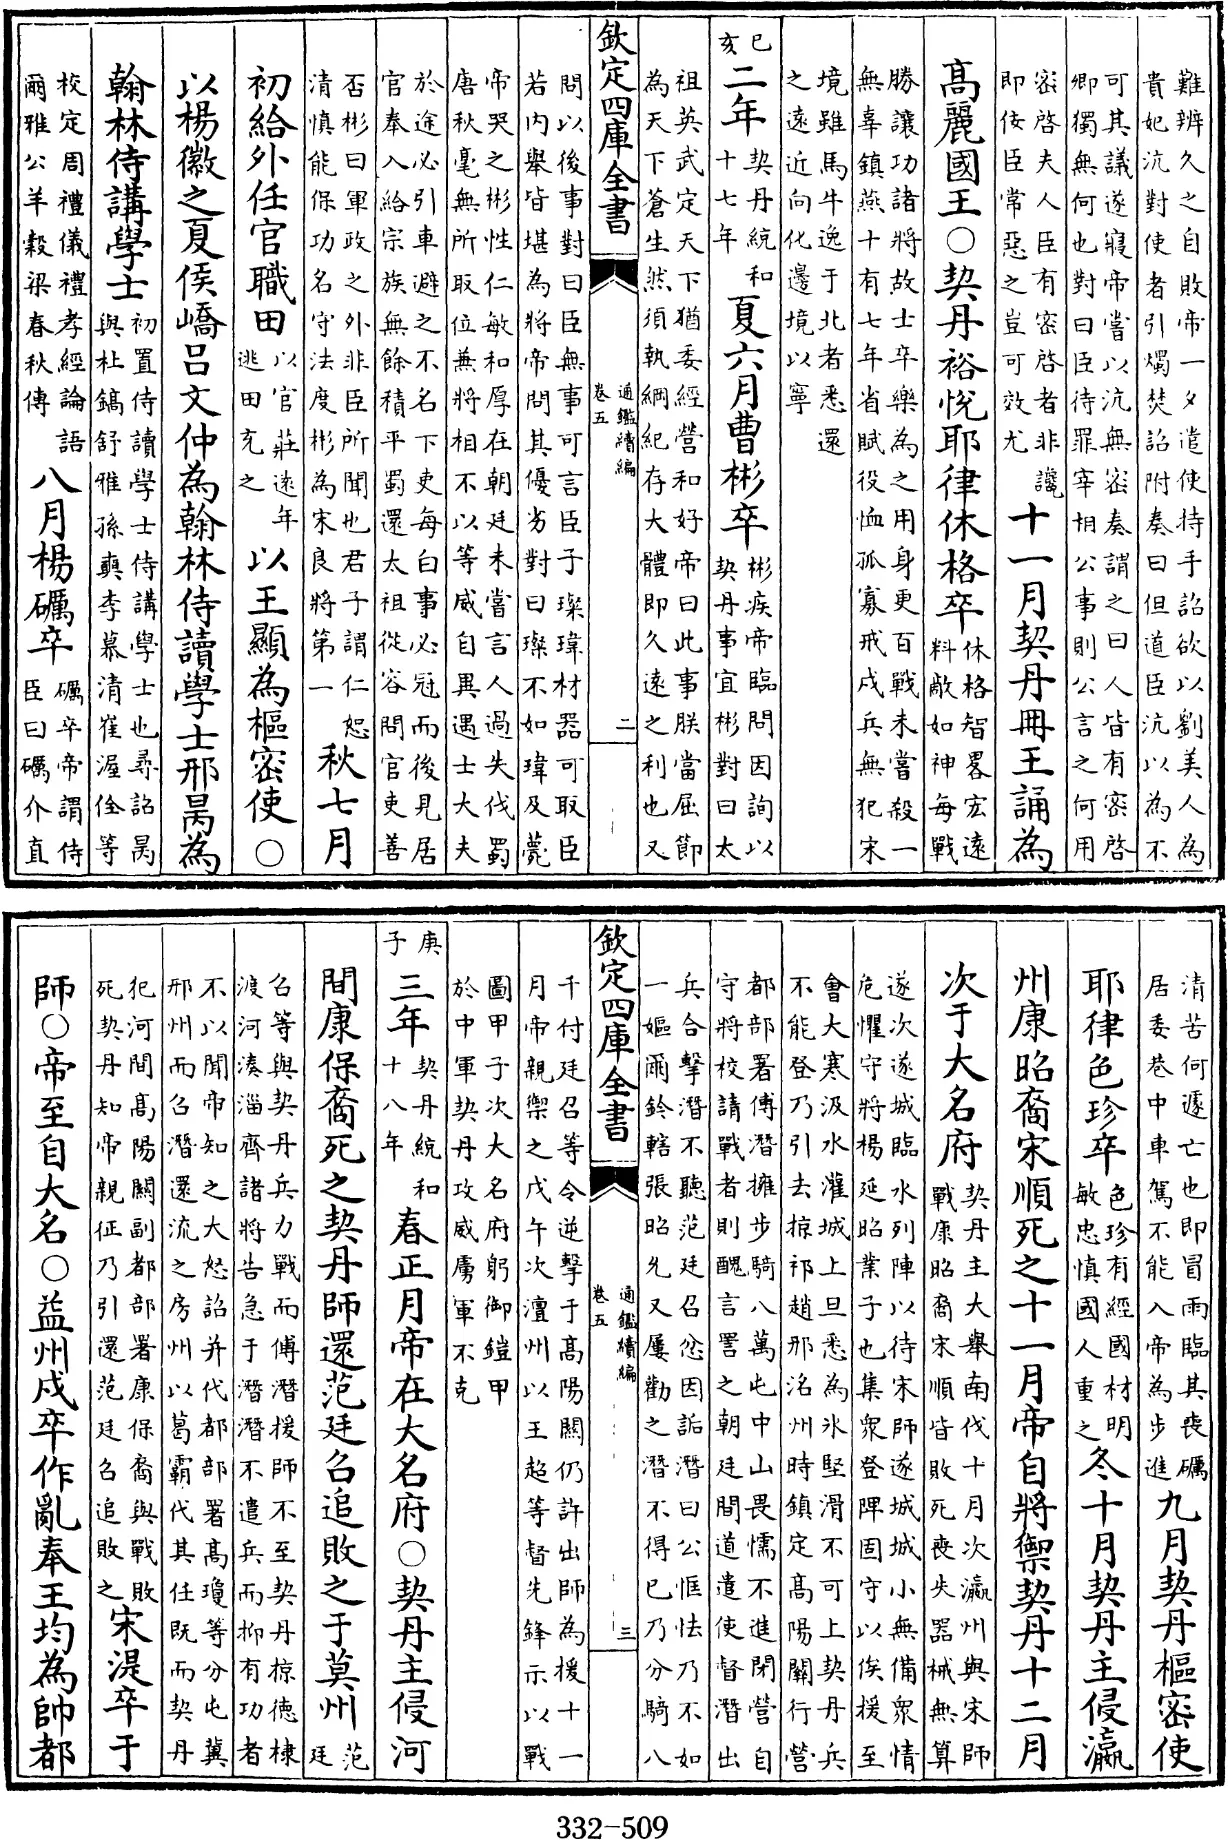 難辨久之自敗帝一夕遣使持手詔欲以劉美人為
貴妃沆對使者引燭焚詔附奏曰但道臣沆以為不
可其議遂寢帝嘗以沆無密奏謂之曰人皆有密啓
卿獨無何也對曰臣待罪宰相公事則公言之何用
密啓夫人臣有密啓者非讒
即佞臣常惡之豈可效尤
十一月契丹冊王誦為
高麗國王○契丹裕悅耶律休格卒
休格智畧宏遠
料敵如神每戰
勝讓功諸將故士卒樂為之用身更百戰未嘗殺一
無辜鎮燕十有七年省賦役恤孤寡戒戍兵無犯宋
境雖馬牛逸于北者悉還
之遠近向化邊境以寧
己亥
二年
契丹統和
十七年
夏六月曹彬卒
彬疾帝臨問因詢以
契丹事宜彬對曰太
祖英武定天下猶委經營和好帝曰此事朕當屈節
為天下蒼生然須執綱紀存大體即久遠之利也又
欽定四庫全書
通鑑續編
卷五
二
問以後事對曰臣無事可言臣子璨瑋材器可取臣
若內舉皆堪為將帝問其優劣對曰璨不如瑋及薨
帝哭之彬性仁敏和厚在朝廷未嘗言人過失伐蜀
唐秋毫無所取位兼將相不以等威自異遇士大夫
於途必引車避之不名下吏每白事必冠而後見居
官奉入給宗族無餘積平蜀還太祖從容問官吏善
否彬曰軍政之外非臣所聞也君子謂仁恕
清慎能保功名守法度彬為宋良將第一
秋七月
初給外任官職田
以官莊遠年
逃田充之
以王顯為樞密使○
以楊徽之夏侯嶠呂文仲為翰林侍讀學士邢昺為
翰林侍講學士
初置侍讀學士侍講學士也尋詔昺
與杜鎬舒雅孫奭李慕清崔渥佺等
校定周禮儀禮孝經論語
爾雅公羊穀梁春秋傳
八月楊礪卒
礪卒帝謂侍
臣曰礪介直
清苦何遽亡也即冒雨臨其喪礪
居委巷中車駕不能入帝為步進
九月契丹樞密使
耶律色珍卒
色珍有經國材明
敏忠慎國人重之
冬十月契丹主侵瀛
州康昭裔宋順死之十一月帝自將禦契丹十二月
次于大名府
契丹主大舉南伐十月次瀛州與宋師
戰康昭裔宋順皆敗死喪失器械無算
遂次遂城臨水列陣以待宋師遂城城小無備衆情
危懼守將楊延昭業子也集衆登陴固守以俟援至
會大寒汲水灌城上旦悉為氷堅滑不可上契丹兵
不能登乃引去掠祁趙邢洺州時鎮定高陽關行營
都部署傅潛擁步騎八萬屯中山畏懦不進閉營自
守將校請戰者則醜言詈之朝廷間道遣使督潛出
兵合擊潛不聽范廷召忿因詬潛曰公恇怯乃不如
一嫗爾鈐轄張昭允又屢勸之潛不得已乃分騎八
欽定四庫全書
通鑑續編
卷五
三
千付廷召等令逆擊于高陽關仍許出師為援十一
月帝親禦之戊午次澶州以王超等督先鋒示以戰
圖甲子次大名府躬御鎧甲
於中軍契丹攻威虜軍不克
庚子
三年
契丹統和
十八年
春正月帝在大名府○契丹主侵河
間康保裔死之契丹師還范廷召追敗之于莫州
范
廷
召等與契丹兵力戰而傅潛援師不至契丹掠德棣
渡河湊淄齊諸將告急于潛潛不遣兵而抑有功者
不以聞帝知之大怒詔并代都部署高瓊等分屯冀
邢州而召潛還流之房州以葛霸代其任既而契丹
犯河間高陽關副都部署康保裔與戰敗
死契丹知帝親征乃引還范廷召追敗之
宋湜卒于
師○帝至自大名○益州戍卒作亂奉王均為帥都
332-509